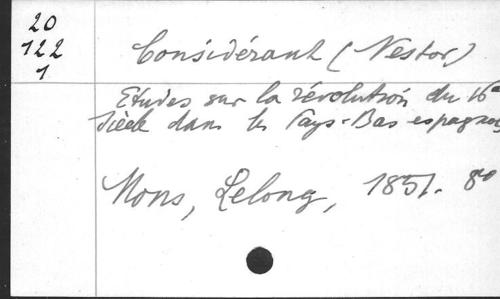 20
122
1
Considérant (Nestor)
Etudes sur la révolution du 16e
siècle dans les Pays-Bas espagnols
Mons, Lelong, 1851. 8o